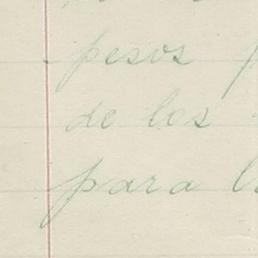 pesos
de los
para